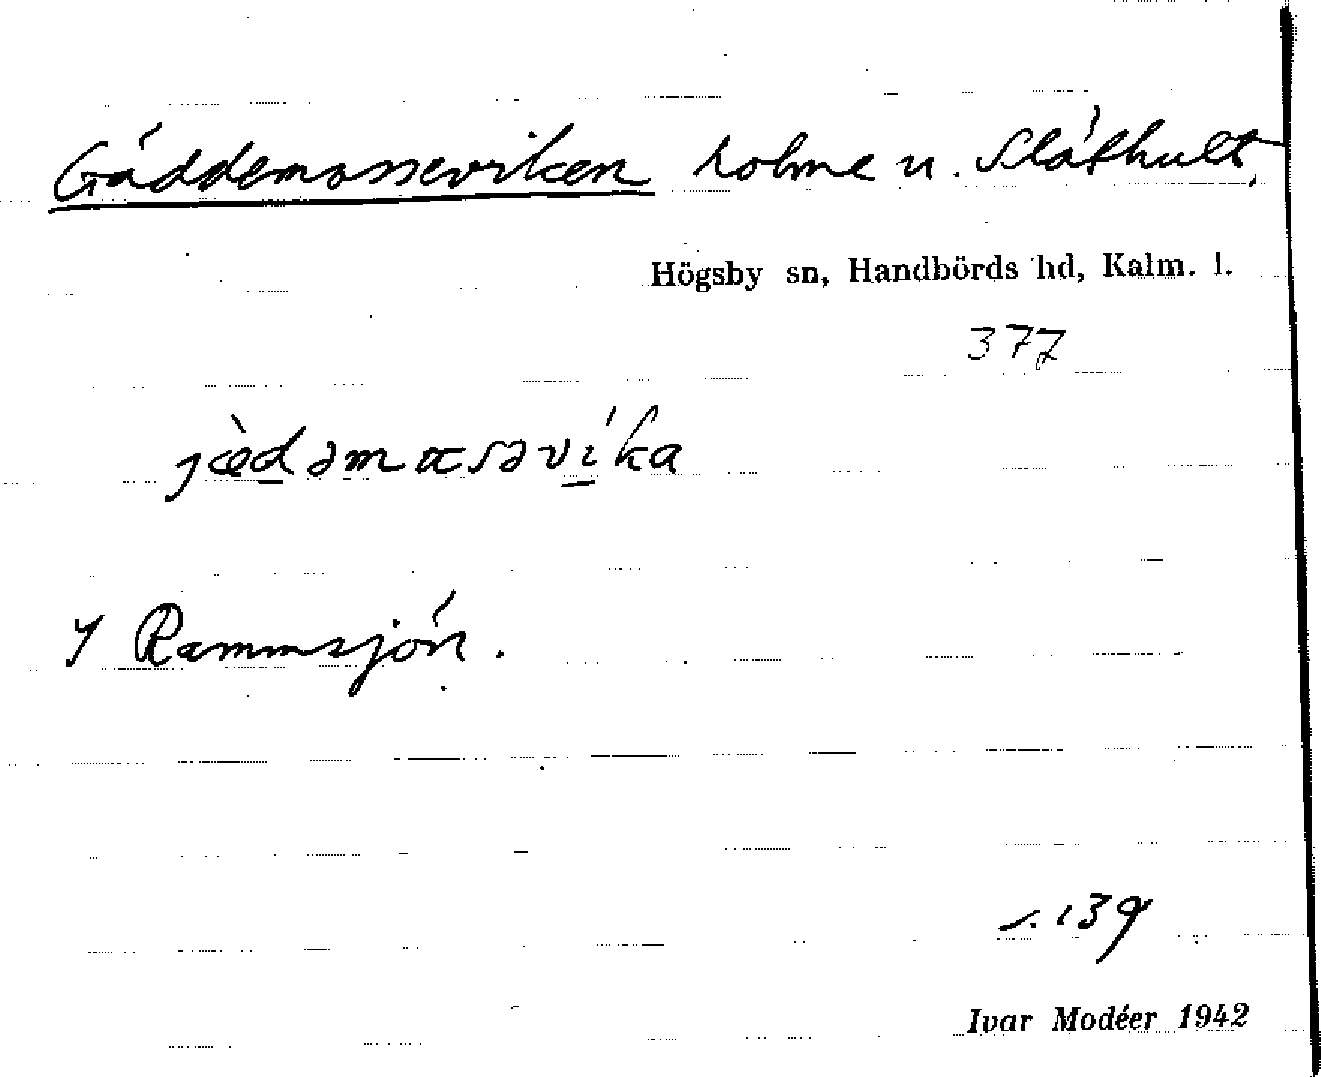 Gäddemosseviken holme u. Släthult.
Högsby sn, Handbörds hd, Kalm. l.
377
jædəmɷsəvíka
I Rammsjön.
s. 139
Ivar Modéer 1942